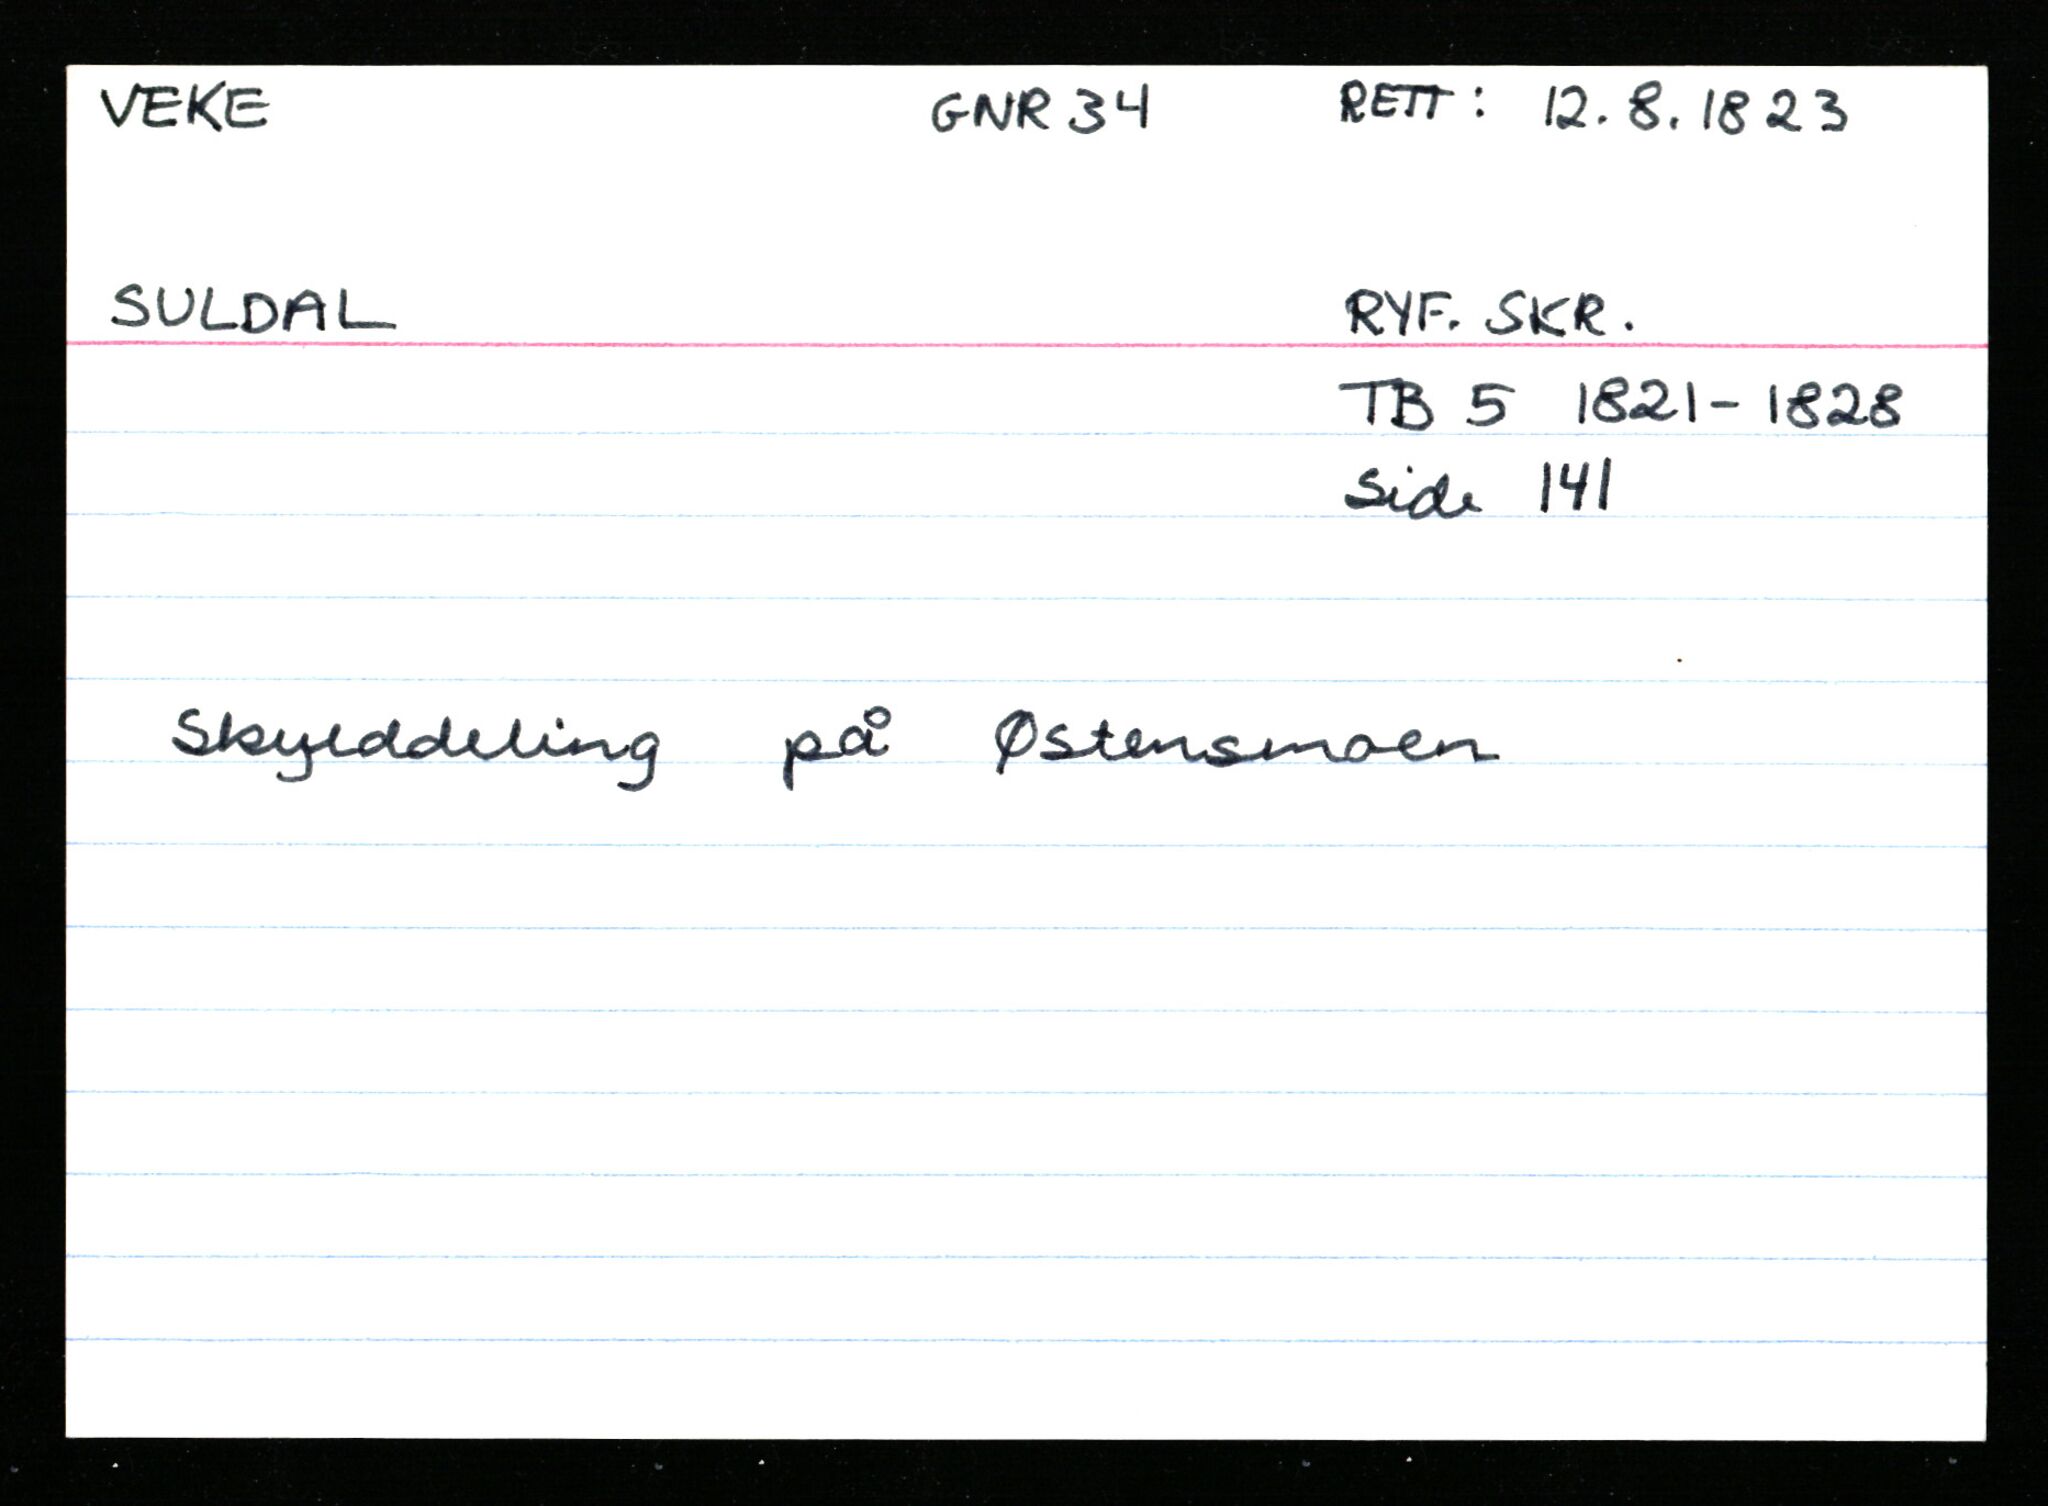 VEKE GNR 34 RETT: 12.8.1823
SULDAL RYF. SKR.
TB 5 1821-1828
Side 141
Skylddeling på Østensmoen